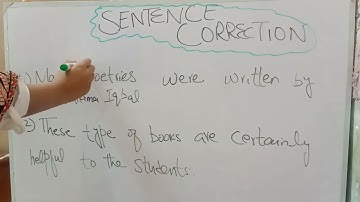 SENTENCE
CORRECTION
poetries were written by
Iqbal
2) These type of books are certainly
helpful to the students.